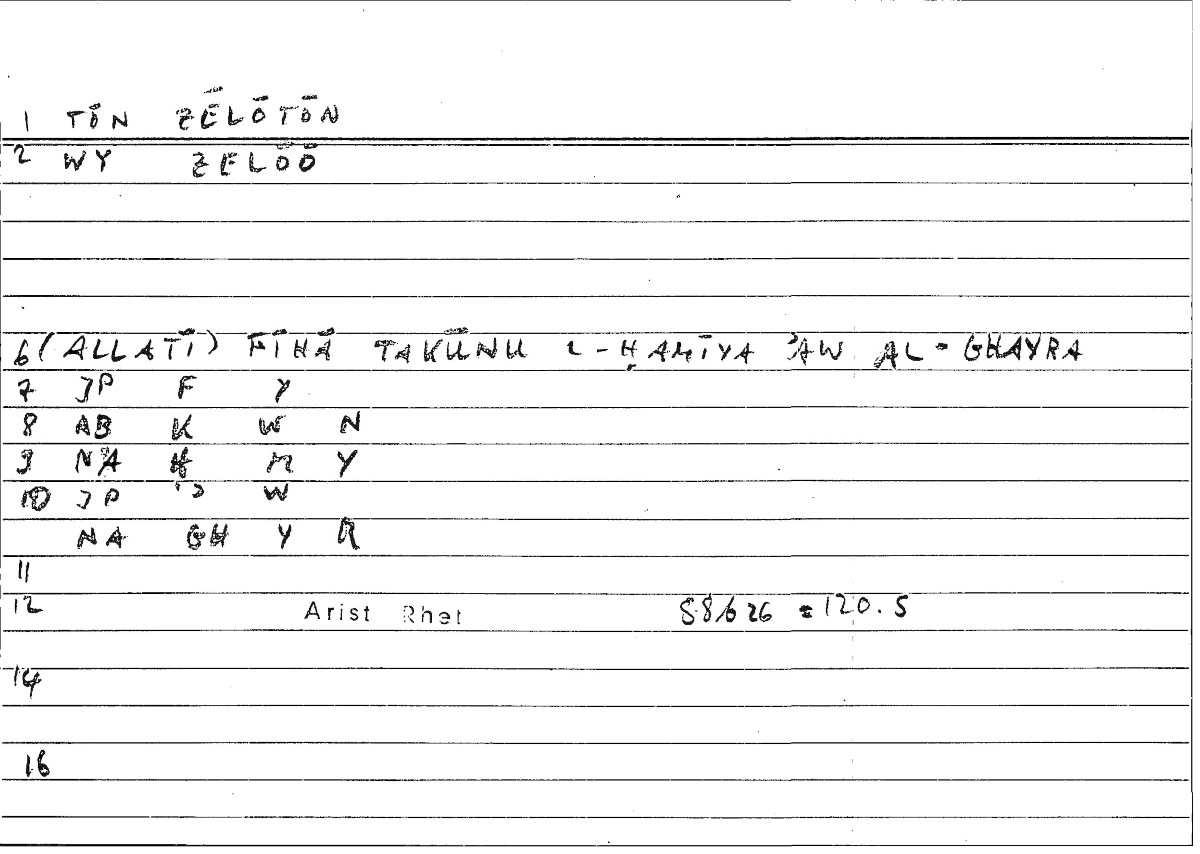 1 TŌN ZĒLŌTŌN
2 WY ZELŌŌ
6 (ALLATĪ) FĪHĀ TAKŪNU L-ḤAMĪYA ʾAW AL-GHAYRA
7 JP F Y
8 AB K W N
9 NA Ḥ M Y
10 JP ʾ W
NA GH Y R
11
12 Arist Rhet 88b26 = 120.5
14
16